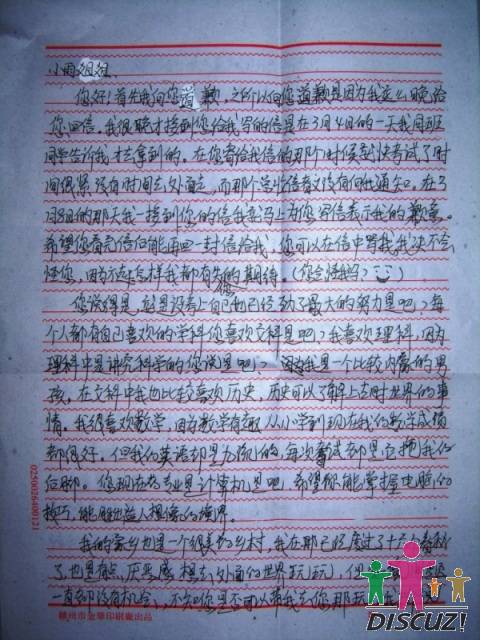 小雨姐姐
您好!首先我向您道歉,之所以向您道歉是因为我这么晚给
您回信。我很晚才接到您给我写的信是在3月4日的一天我同班
同学告诉我才拿到的。在您寄给我信的那个时候我快考试了时
间很紧没有时间去外面走,而那个学生信者又没有向他通知。在3
月8日的那天我一接到您的信我马上为您写信表示我的歉意。
希望您看完信后能再回一封信给我,您可以在信中骂我我决不会
怪您,因为不论怎样我都有您的期待。(您会怪我吗?
您说得是,这是没考上自己也已经努力了最大的努力是吧?每
个人都有自己喜欢的学科您喜欢文科是吧?我喜欢理科,因为
理科中是讲究科学的您说是吧?因为我是一个比较内向的男
孩,在文科中我也比较喜欢历史,历史可以了解上古时世界的事
情。我很喜欢数学,因为数学有趣从小学到现在我的数学成绩
都很好,但我的英语却是为倒的,每次考试却是它拖我的
后脚。您现在考专业是计算机是吧,希望你能掌握电脑的
技巧,能胜出益人想像的境界。
我的家乡也是一个很美的乡村,我在那已经度过了十六个春秋
了,也是有点厌恶感想去外面的世界玩玩,但
一直却没有机会,不知您是否可以带我去您那玩
赣州市金华印刷厂出品
0250026400121
DISCUZ!